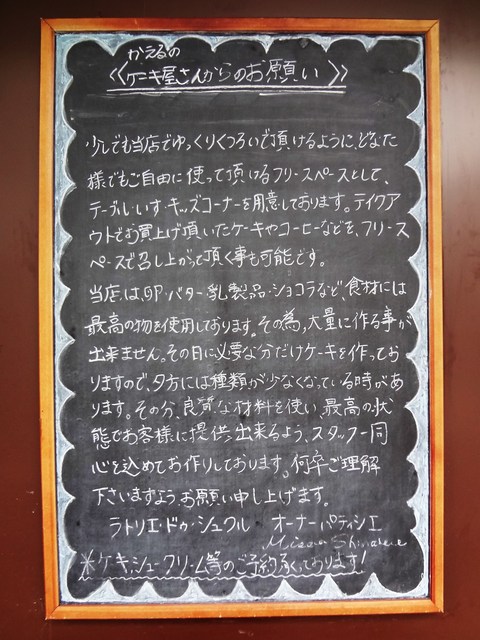 かえるの
《ケーキ屋さんからのお願い》
少しでも当店でゆっくりくつろいで頂けるように、どなた
様でもご自由に使って頂けるフリースペースとして、
テーブル・いす・キッズコーナーを用意しております。テイクア
ウトでお買上げ頂いたケーキやコーヒーなどを、フリース
ペースで召し上がって頂く事も可能です。
当店は、卵・バター・乳製品・ショコラなど、食材には
最高の物を使用しております。その為、大量に作る事が
出来ません。その日に必要な分だけケーキを作ってお
りますので、夕方には種類が少なくなっている時があ
ります。その分、良質な材料を使い、最高の状
態でお客様に提供出来るよう、スタッフ一同
心を込めてお作りしております。何卒ご理解
下さいますようお願い申し上げます。
ラトリエ・ドゥ・シュクル オーナーパティシエ
*ケーキ、シュークリーム等のご予約承っております!